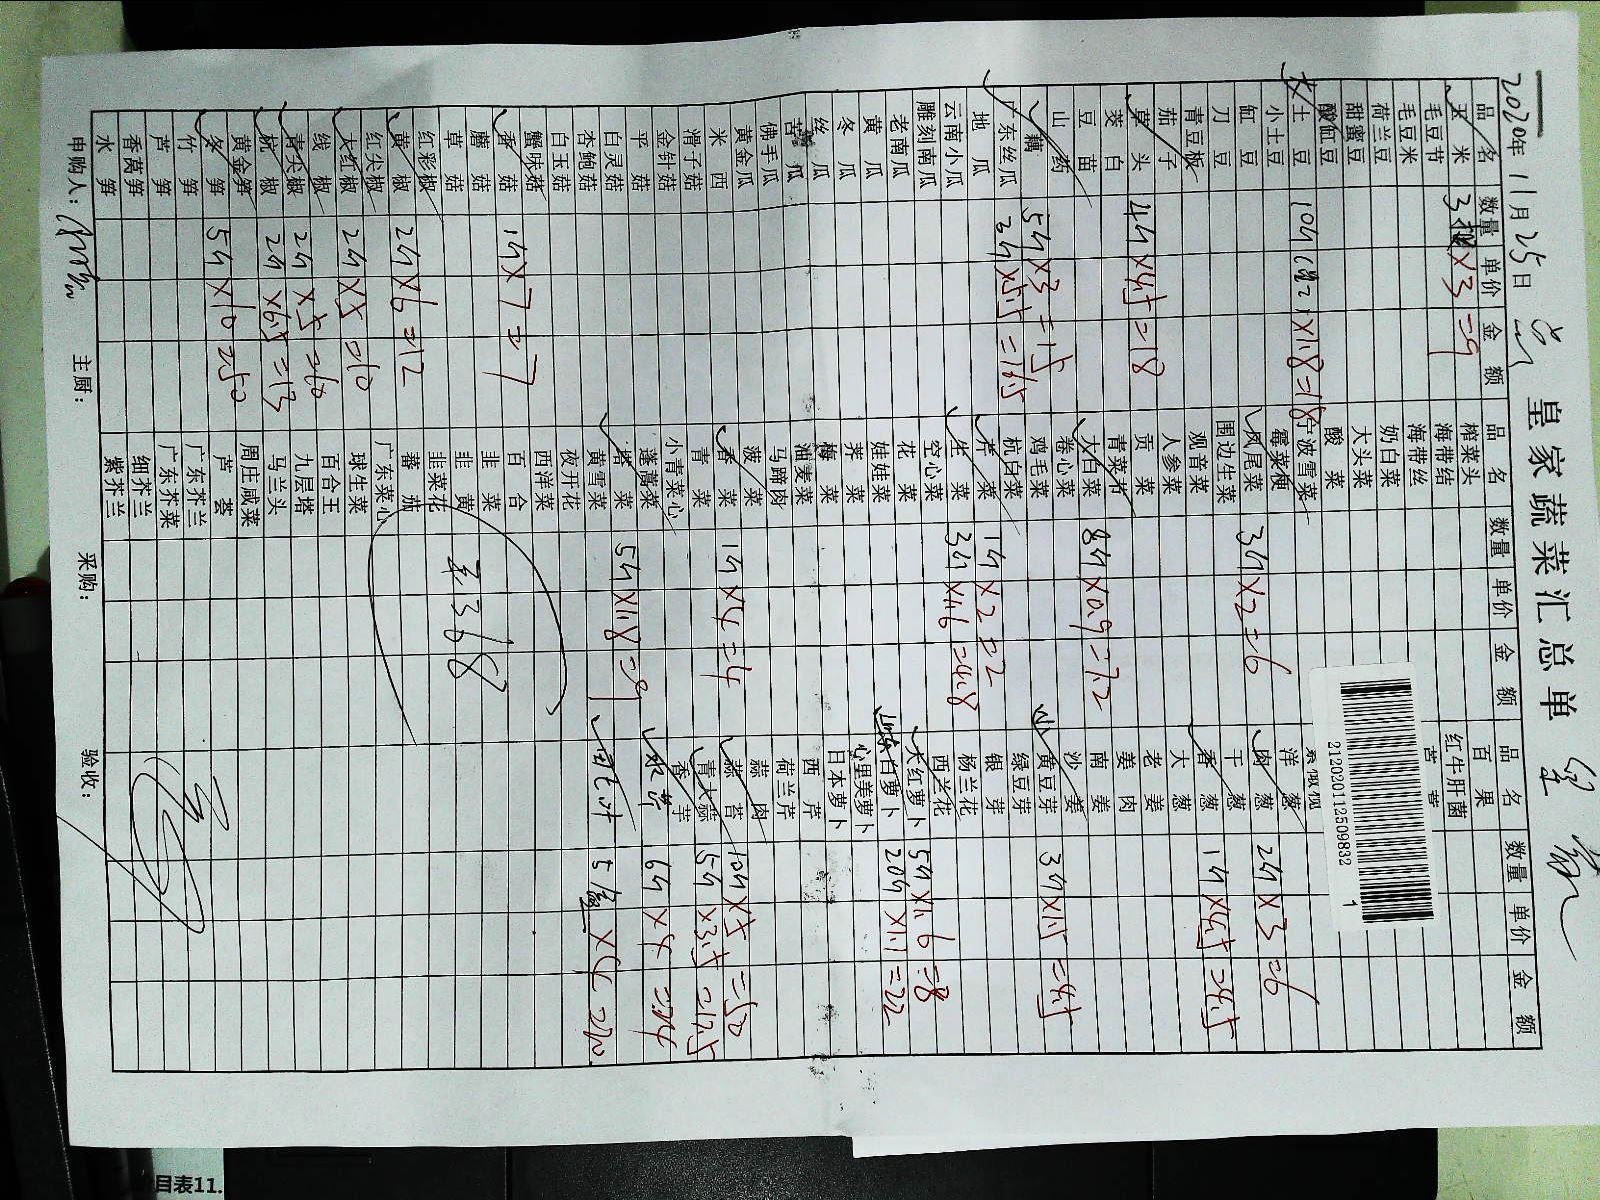 皇家蔬菜汇总单
2020年11月25日
品 名 数量 单价 金 额 品 名 数量 单价 金 额 品 名 数量 单价 金 额
玉 米 3 ×3 =9 榨菜头 百 果
毛豆节 海带结 红牛肝菌
毛豆米 海带丝
荷兰豆 奶白菜
甜蜜豆 大头菜
酸缸豆 酸 菜
大土 豆 10斤 ×1.8=18 宁波雪菜
小土豆 霉菜梗 洋 葱
缸 豆 凤尾菜 3斤×2=6 肉 葱 2斤×3=6
刀 豆 围边生菜 干 葱
青豆板 观音菜 香 葱 1斤×4.5=4.5
茄 子 人参菜 大 葱
草 头 4斤×4.5=18 贡 菜 老 姜
茭 白 青菜节 姜 肉
豆 苗 大白菜 8斤×0.9=7.2 南 姜
山 药 卷心菜 沙 姜
藕 5斤×3=15 鸡毛菜 小黄豆芽 3斤×1.5=4.5
广东丝瓜 3斤×5.5=16.5 杭白菜 绿豆芽
地 瓜 芹 菜 1斤×2=2 银 芽
云南小瓜 生 菜 3斤×1.6=4.8 杨兰花
雕刻南瓜 空心菜 西兰花
老南瓜 花 菜 大红萝卜 5斤×1.6=8
黄 瓜 娃娃菜 白萝卜 20斤×1.1=22
冬 瓜 荠 菜 心里美萝卜
丝 瓜 梅 菜 日本萝卜
苦 瓜 油麦菜 西 芹
佛手瓜 马蹄肉 荷兰芹
黄金瓜 菠 菜 蒜 肉
米 西 香 菜 1斤×4=4 蒜 苔 10斤×5=50
滑子菇 青 菜 青大蒜 5斤×3.5=17.5
金针菇 小青菜心 香 芋
平 菇 蓬蒿菜 水芹 6斤×4=24
白灵菇 塔 菜 5斤×1.8=9
杏鲍菇 黄雪菜
白玉菇 夜开花
蟹味菇 西洋菜
香 菇 1斤×7=7 百 合
蘑 菇 韭 菜
草 菇 韭 黄
红彩椒 韭菜花
黄 椒 2斤×6=12 蕃 茄
红尖椒 广东菜心
大红椒 2斤×5=10 球生菜
线 椒 百合王
青尖椒 2斤×5=10 九层塔
杭 椒 2斤×6.5=13 马兰头
黄金笋 周庄咸菜
冬 笋 5斤×10=50 芦 荟
竹 笋 广东芥兰
芦 笋 广东芥菜
香莴笋 细芥兰
水 笋 紫芥兰
申购人: 主厨: 采购: 验收:
212020112509832 1
目表11.